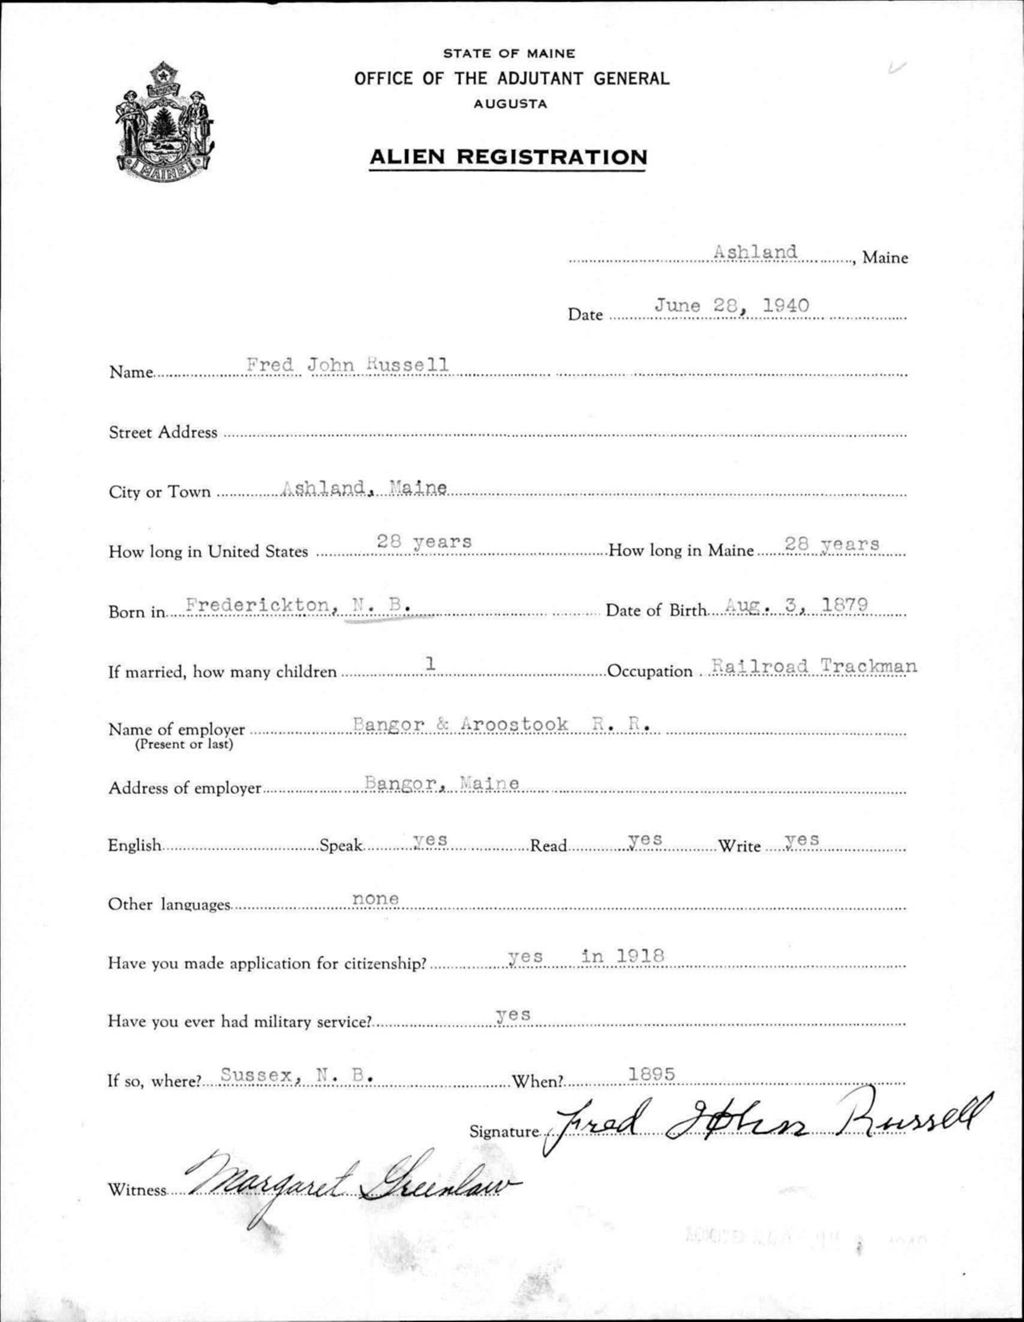 STATE OF MAINE
OFFICE OF THE ADJUTANT GENERAL
AUGUSTA
ALIEN REGISTRATION
MAINE
Ashland, Maine
Date June 28, 1940
Name Fred John Russell
Street Address
City or Town Ashland, Maine
How long in United States 28 years How long in Maine 28 years
Born in Frederickton, N. B. Date of Birth Aug. 3, 1879
If married, how many children 1 Occupation Railroad Trackman
Name of employer Bangor & Aroostook R. R.
(Present or last)
Address of employer Bangor, Maine
English Speak yes Read yes Write yes
Other languages none
Have you made application for citizenship? yes in 1918
Have you ever had military service? yes
If so, where? Sussex, N. B. When? 1895
Signature Fred John Russell
Witness Margaret Greenlaw